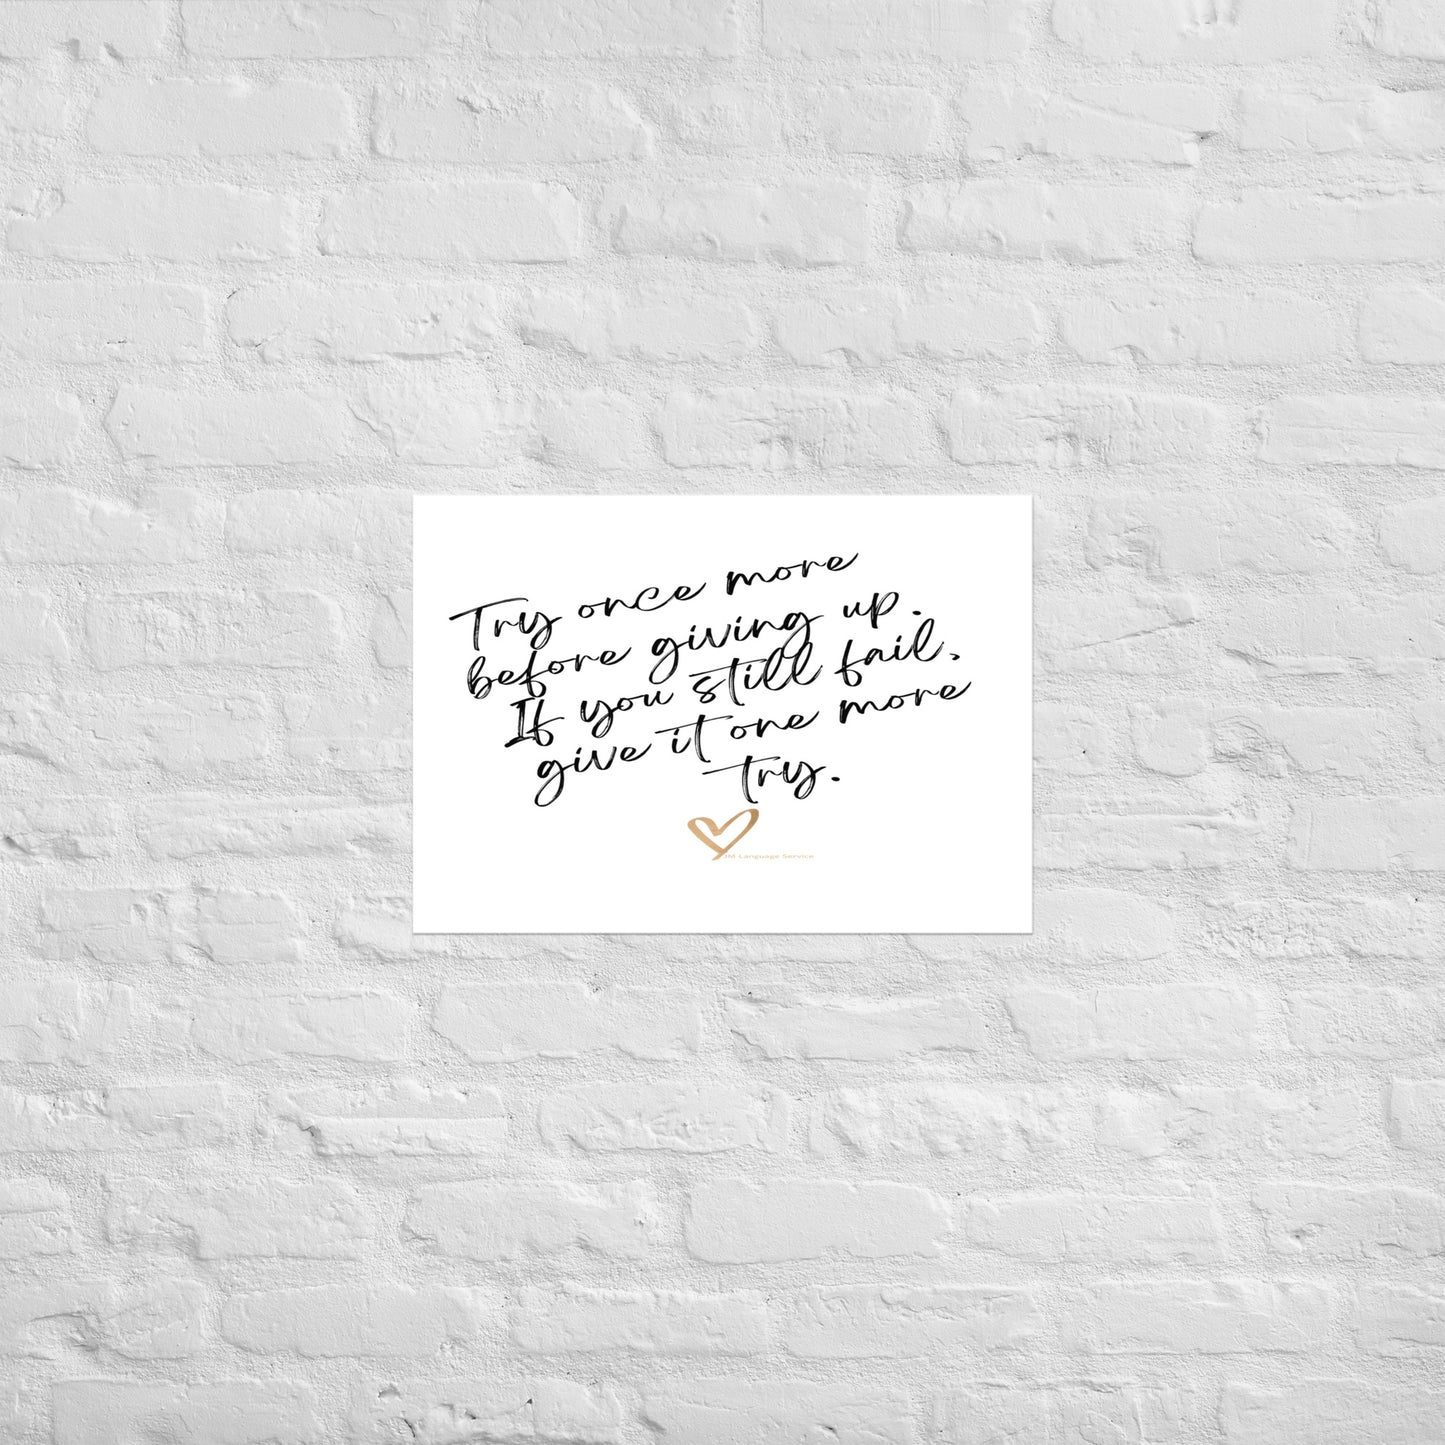 Try once more
before giving up.
If you still fail,
give it one more
try.
JM Language Service